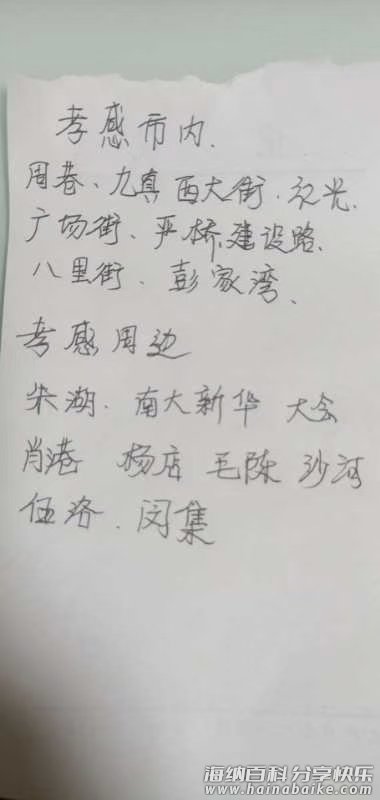 孝感市内.
周巷、九真 西大街.
广场街、严桥 建设路、
八里街、彭家湾、
孝感周边
朱湖. 南大 新华 大会
肖港 杨店 毛陈 沙河
伍洛. 闵集
海纳百科 分享快乐
www.hainabaike.com